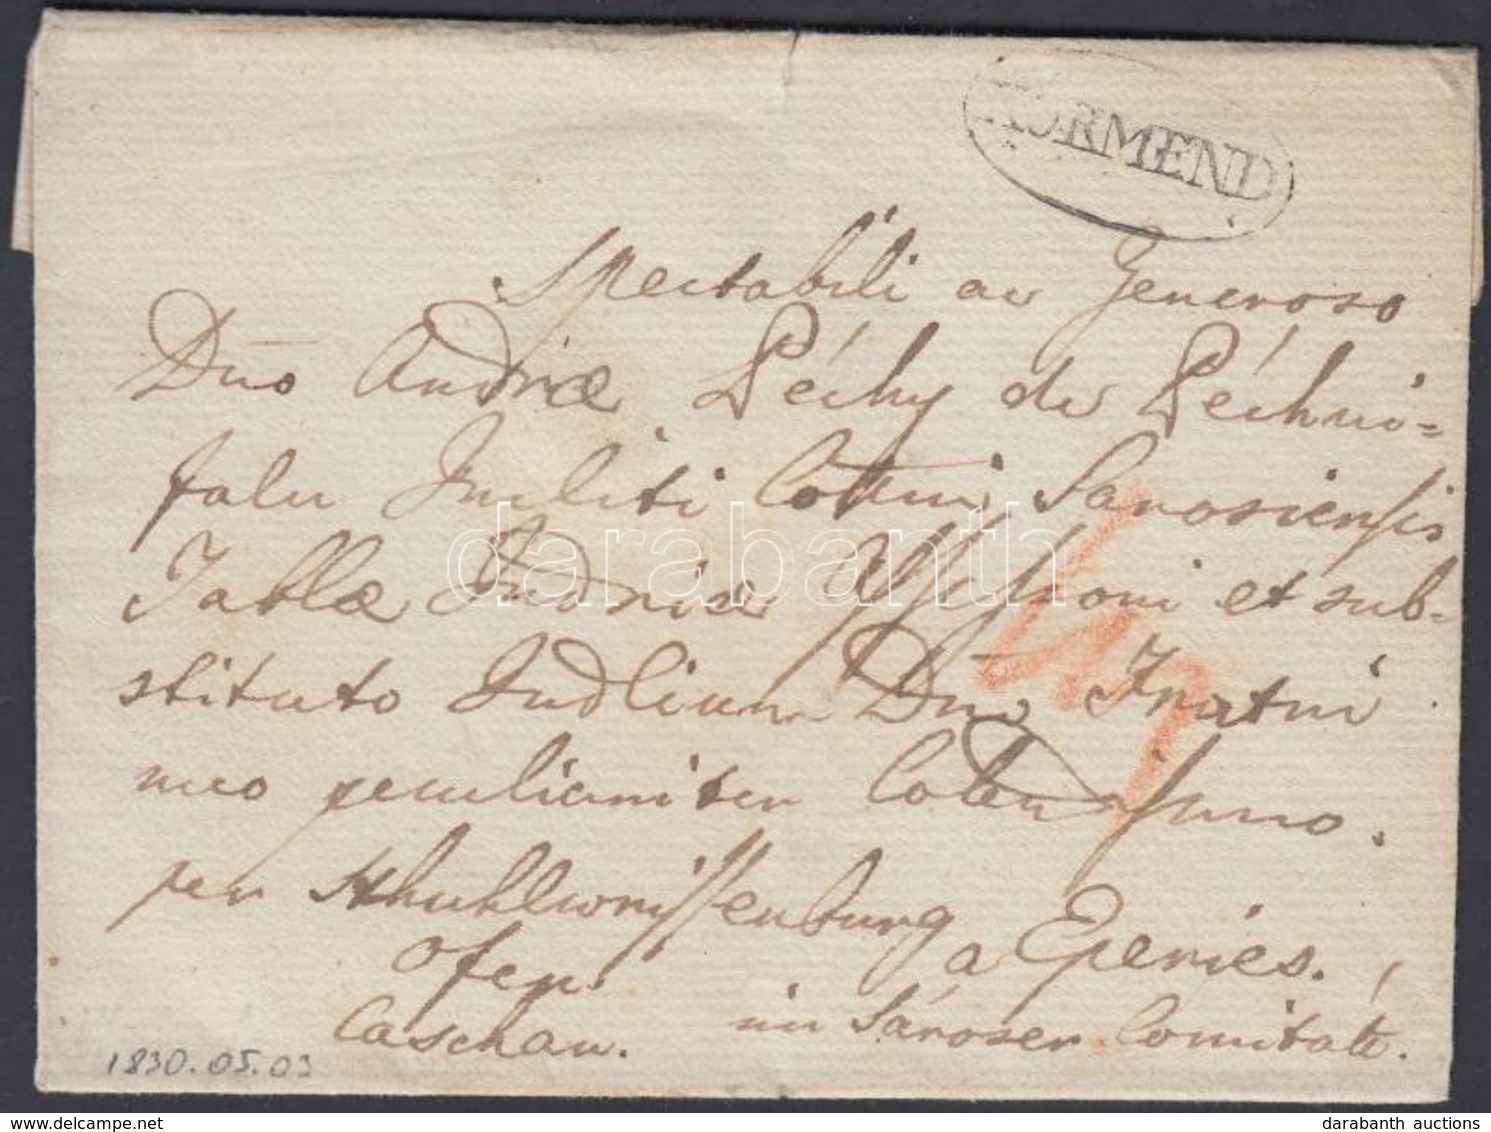 KÖRMEND
Spectabili ac Generoso
Dno Andreæ Péchy de Péchuj=
falu Incliti Cottui Sarosiensis
Tablæ Judriæ Assessori et sub=
stituto Judlium Dno Fratri
meo peculiariter Colendissimo.
per Stuhlweissenburg
Ofen.
a Eperies.
Caschau.
im Sároser Comitate.
1830.05.03
darabanth
delcampe.net
darabanth auctions